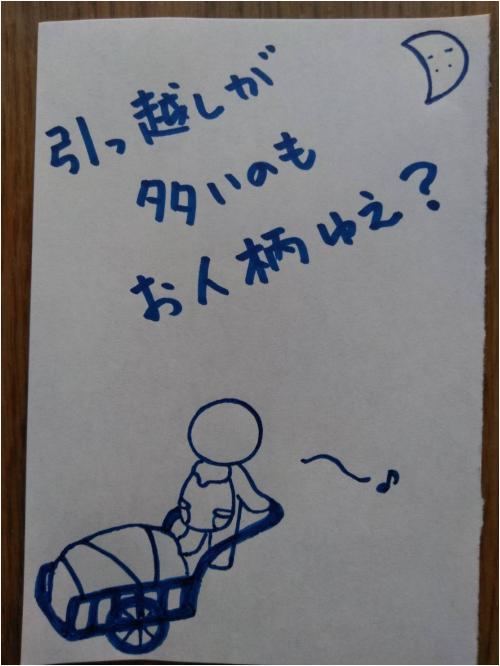 引っ越しが
多いのも
お人柄ゆえ？